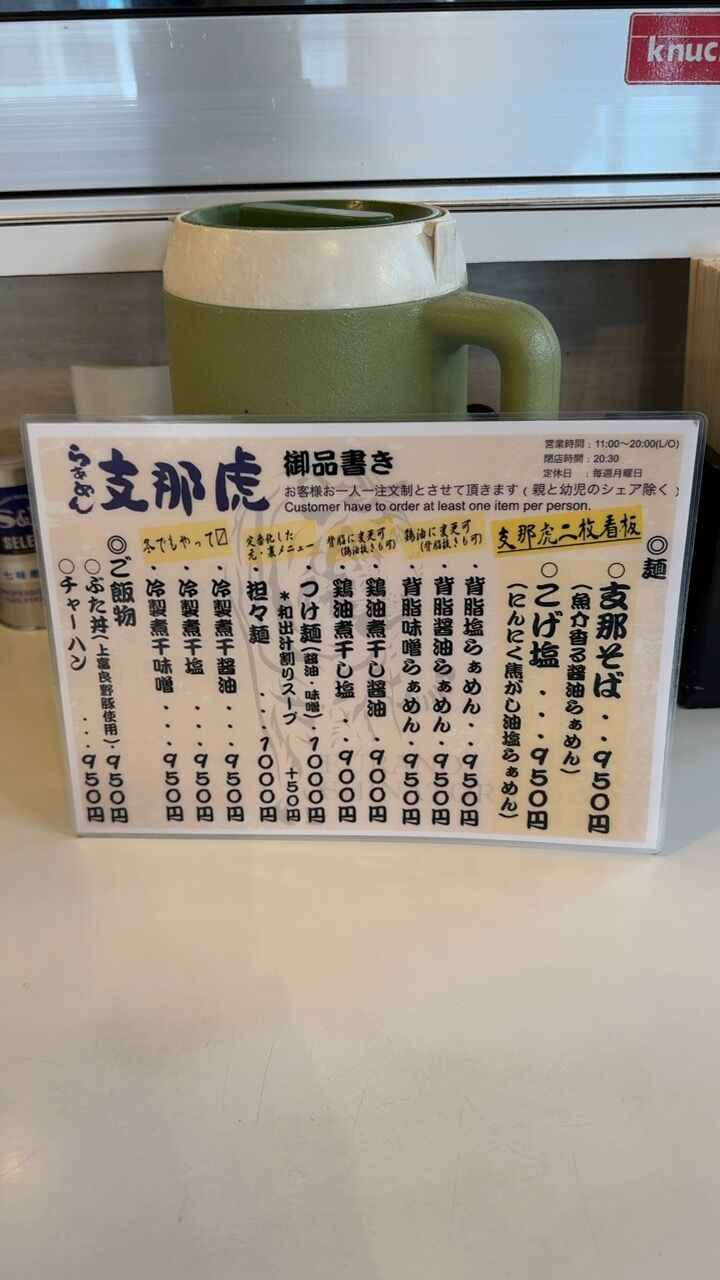 knuc
らぁめん
支那虎
御品書き
営業時間：11:00〜20:00(L/O)
閉店時間：20:30
定休日　：毎週月曜日
お客様お一人一注文制とさせて頂きます（親と幼児のシェア除く）
Customer have to order at least one item per person.
◎麺
支那虎二枚看板
○支那そば・・950円
（魚介香る醤油らぁめん）
○こげ塩・・・950円
（にんにく焦がし油塩らぁめん）
鶏油に変更可
（背脂抜きも可）
・背脂塩らぁめん・・950円
・背脂醤油らぁめん・950円
・背脂味噌らぁめん・950円
背脂に変更可
（鶏油抜きも可）
・鶏油煮干し醤油・・900円
・鶏油煮干し塩・・・900円
定番化した
元・裏メニュー
・つけ麺（醤油・味噌）・1000円
＊和出汁割りスープ　＋50円
・担々麺・・・1000円
冬でもやって〼
・冷製煮干醤油・・・950円
・冷製煮干塩・・・950円
・冷製煮干味噌・・・950円
◎ご飯物
○ぶた丼（上富良野豚使用）・950円
○チャーハン・・・950円
S&
SELE
七味唐